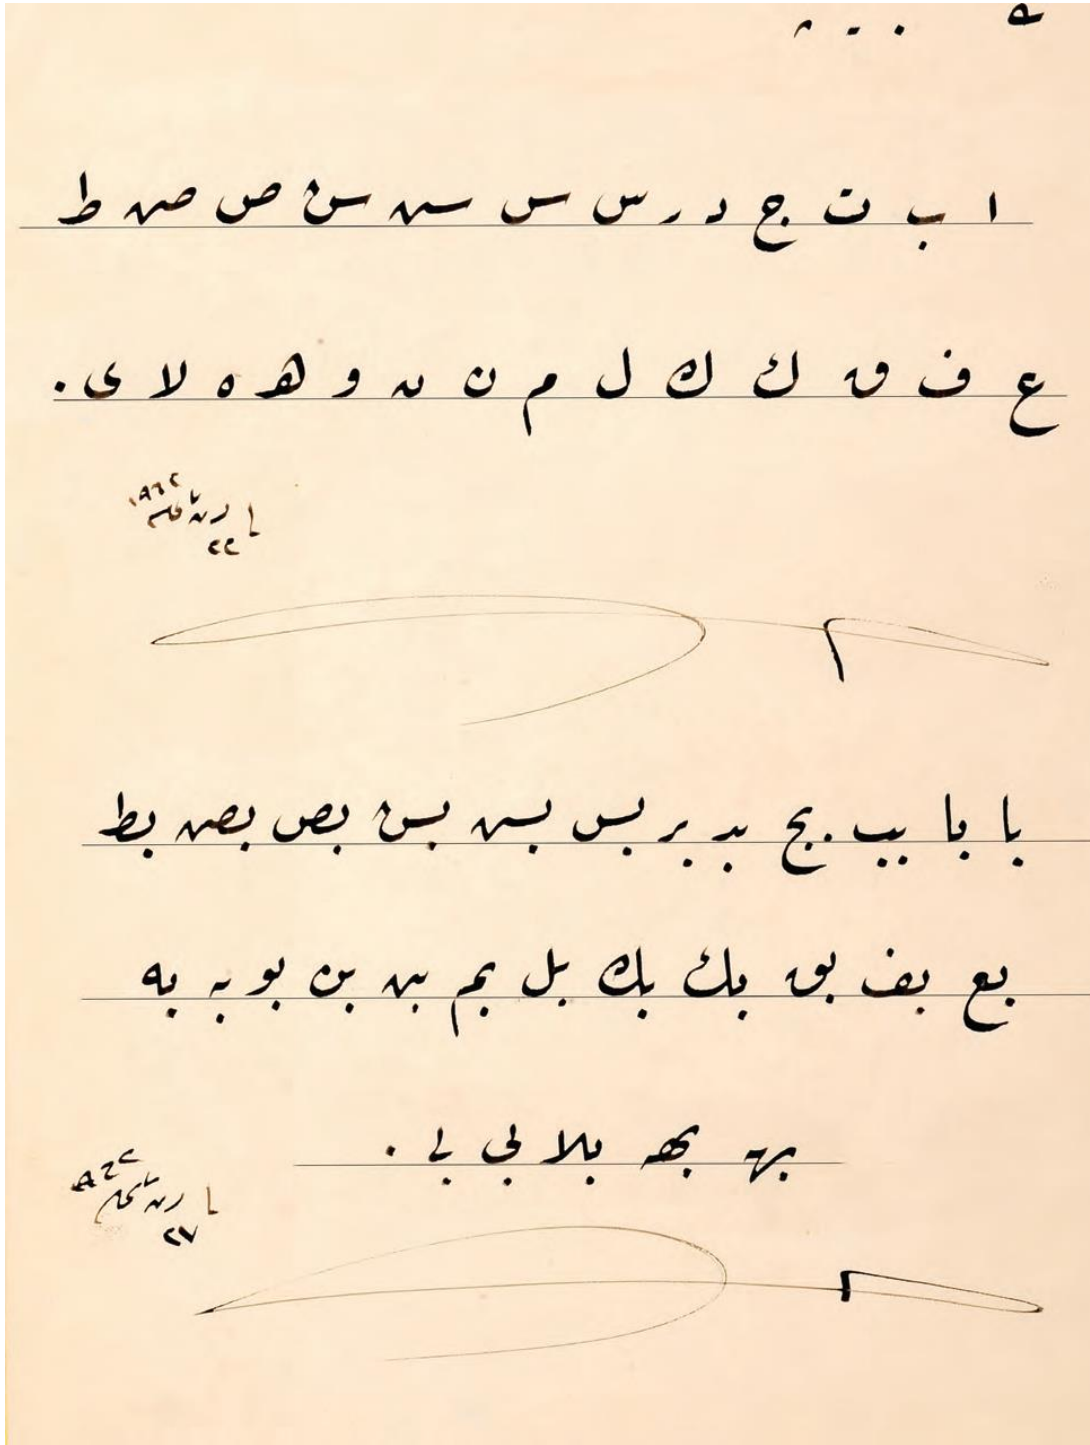 ا ب ت ج د ر س س س س ص ص ط
ع ف ق ك ك ل م ن ن و ه ه لا ى .
١٩٦٢
٢٢
با با بب بج بد بر بس بس بس بص بص بط
بع بف بق بك بك بل بم بن بن بو بہ به
بہ بھ بلا بى بے .
٢٧